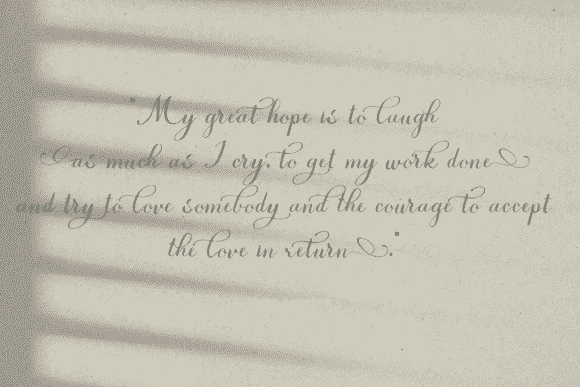 "My great hope is to laugh
as much as I cry; to get my work done
and try to love somebody and the courage to accept
the love in return."